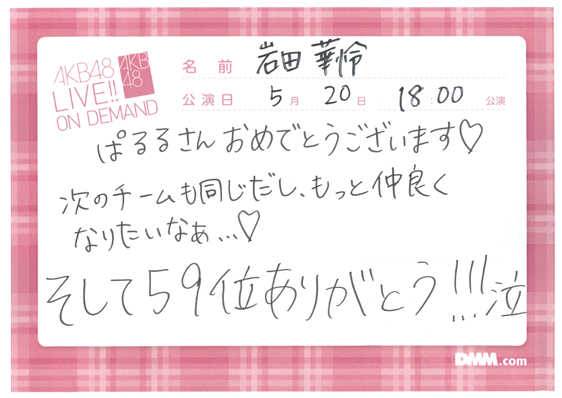 AKB48
LIVE!!
ON DEMAND
AKB
48
名前 岩田 華怜
公演日 5月 20日 18:00 公演
ぱるるさん おめでとうございます♡
次のチームも同じだし、もっと仲良く
なりたいなぁ...♡
そして59位ありがとう!!!泣
DMM.com